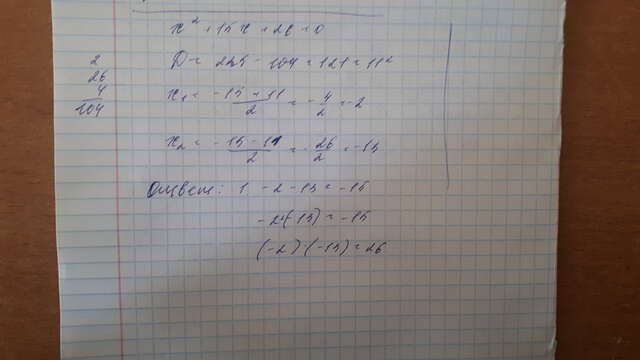 x² + 15x + 26 = 0
D = 225 - 104 = 121 = 11²
x₁ = (-15 + 11)/2 = -4/2 = -2
x₂ = (-15 - 11)/2 = -26/2 = -13
1 -2 - 13 = -15
-2 + (-13) = -15
(-2)·(-13) = 26
2
26
4
104